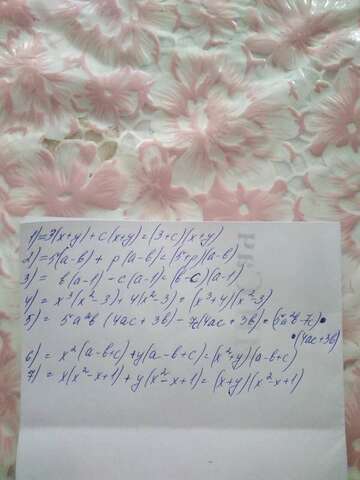 1) = 3(x+y) + c(x+y) = (3+c)(x+y)
2) = 5(a-b) + p(a-b) = (5+p)(a-b)
3) = b(a-1) - c(a-1) = (b-c)(a-1)
4) = x³(x²-3) + 4(x²-3) = (x³+4)(x²-3)
5) = 5a²b (4ac+3b) - 7c(4ac+3b) = (5a²b-7c)•
•(4ac+3b)
6) = x²(a-b+c) + y(a-b+c) = (x²+y)(a-b+c)
7) = x(x²-x+1) + y(x²-x+1) = (x+y)(x²-x+1)